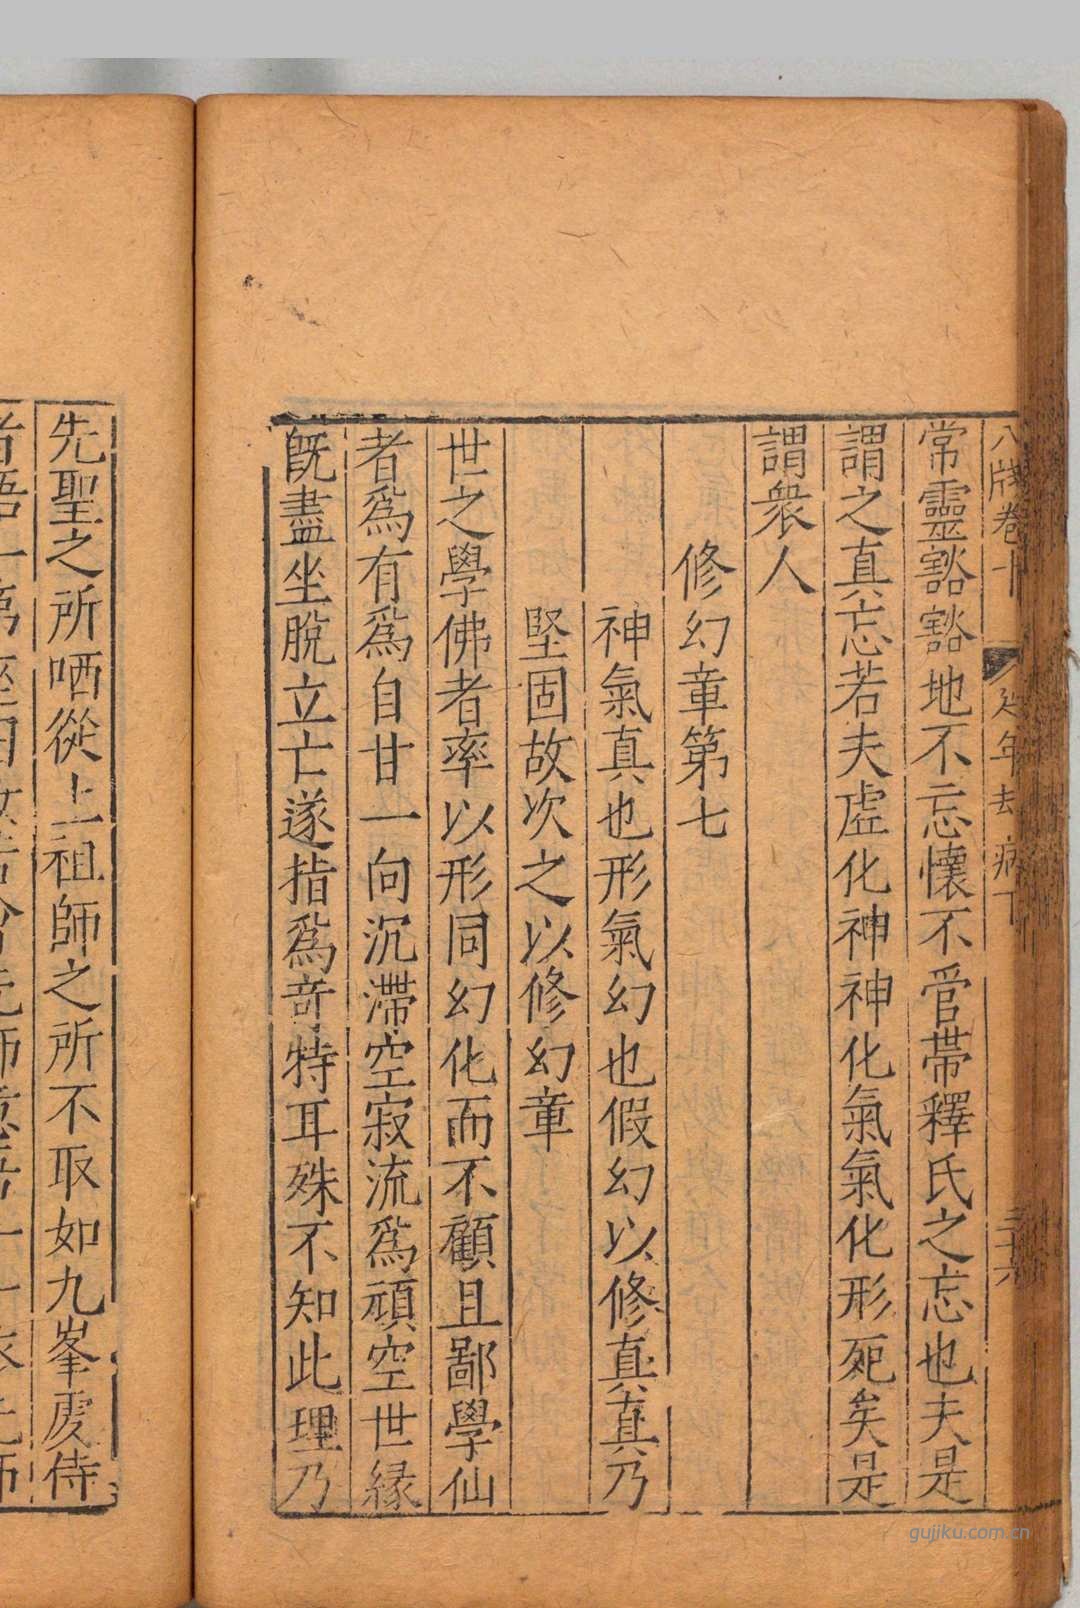 八牋卷十 延年去病下 三十六
常靈豁豁地不忘懷不管帶釋氏之忘也夫是
謂之真忘若夫虛化神神化氣氣化形死矣是
謂衆人
修幻章第七
神氣真也形氣幻也假幻以修真真乃
堅固故次之以修幻章
世之學佛者率以形同幻化而不顧且鄙學仙
者爲有爲自甘一向沉滯空寂流爲頑空世緣
旣盡坐脫立亡遂指爲竒特耳殊不知此理乃
先聖之所哂從上祖師之所不取如九峯䖍侍
gujiku.com.cn